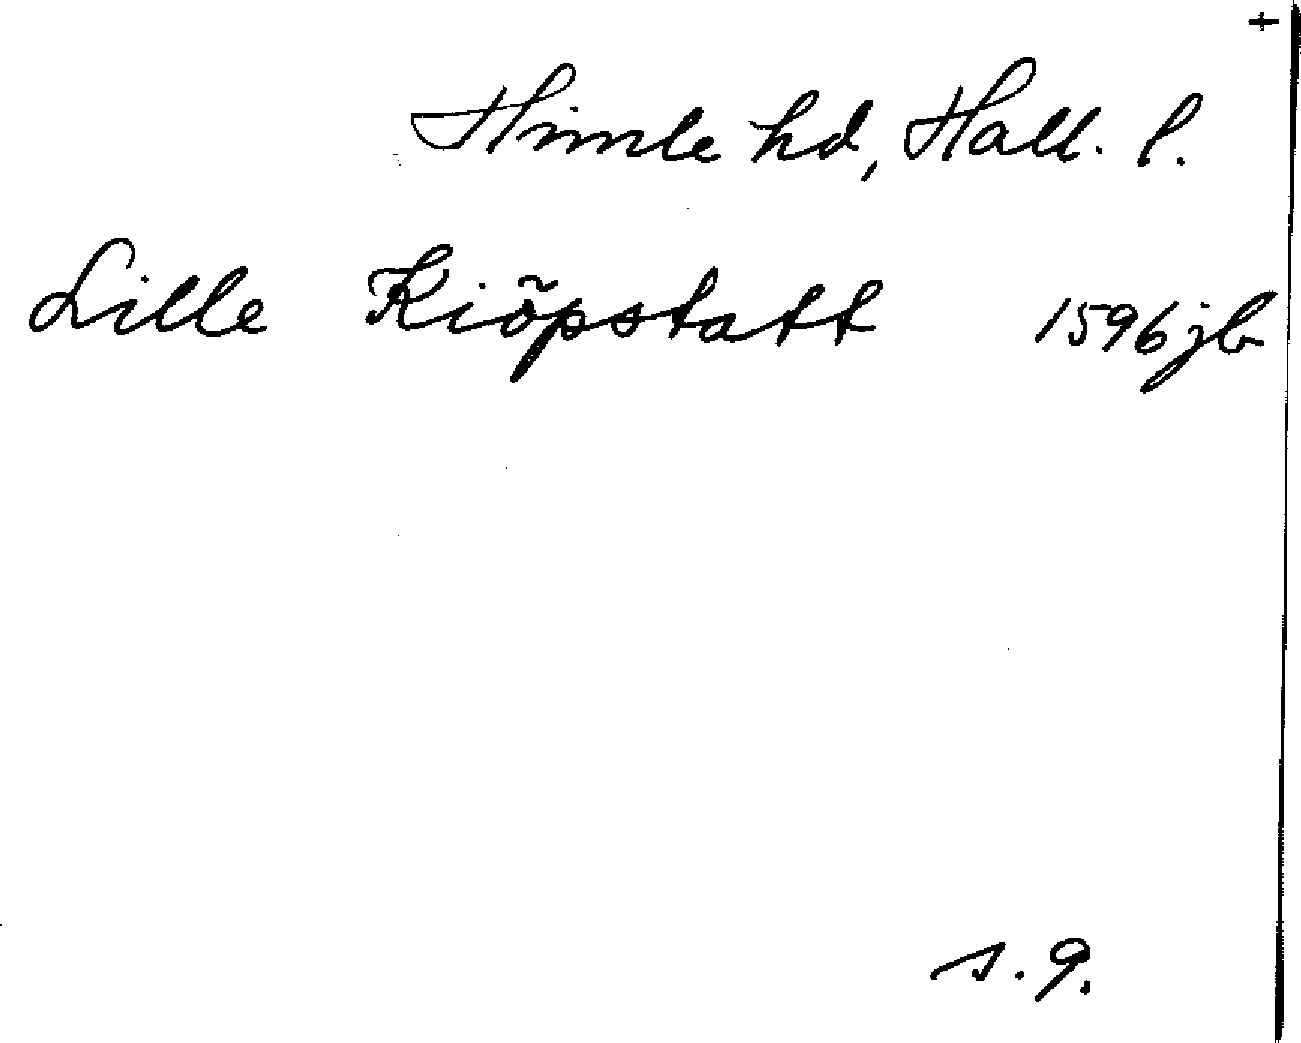 +
Himle hd, Hall. l.
Lille Kiõpstatt 1596 jb
s. 9.